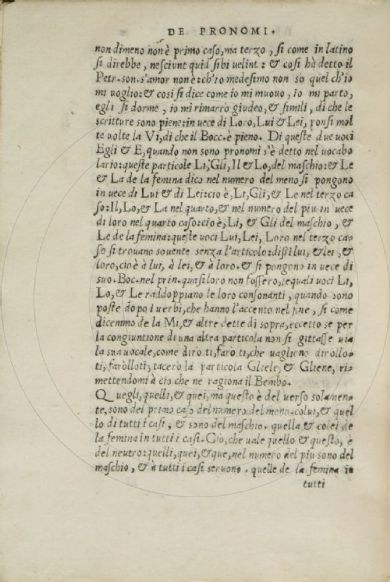 DE PRONOMI.
non dimeno non è primo caso, ma terzo, si come in latino
si direbbe, nesciunt quid sibi uelint: & così ha detto il
Petr. son. s'amor non è: ch'io medesimo non so quel ch'io
mi voglio: & cosi si dice come io mi muouo, io mi parto,
egli si dorme, io mi rimarrò giudeo, & simili, di che le
scritture sono piene: in uece di Loro, Lui & Lei, ponsi mol
te uolte la Vi, di che il Bocc. è pieno. Di queste due uoci
Egli & E, quando non sono pronomi s'è detto nel uocabo
lario: queste particole Li, Gli, Il & Lo, del maschio: & Le
& La de la femina dico nel numero del meno si pongono
in uece di Lui & di Lei: cio è, Li, Gli, & Le nel terzo ca
so: Il, Lo, & La nel quarto, & nel numero del piu in uece
di loro nel quarto caso: cio è, Li, & Gli del maschio, &
Le de la femina: queste uoci Lui, Lei, Loro nel terzo ca-
so si trouano souente senza l'articolo: dißi lui, & lei, &
loro, cio è à lui, à lei, & à loro. & si pongono in uece di
suo. Boc. nel prin. quasi loro non fossero, lequali uoci Li,
Lo, & Le raddoppiano le loro consonanti, quando sono
poste dopo i uerbi, che hanno l'accento nel fine, si come
dicemmo de la Mi, & altre dette di sopra, eccetto se per
la congiuntione di una altra particola non si gittasse uia
la sua uocale, come diro ti, faro ti, che uagliono dirollo-
ti, farolloti, tacerò la particola Gliele, & Gliene, ri-
mettendomi à cio che ne ragiona il Bembo.
Quegli, quelli, & quei, ma questo è del uerso solamen-
te, sono del primo caso del numero del meno. colui, & quel
lo di tutti i casi, & sono del maschio. quella & colei de
la femina in tutti i casi. Ciò, che uale quello & questo, è
del neutro: quelli, quei, & que, nel numero del piu sono del
maschio, & à tutti i casi seruono. quelle de la femina in
tutti